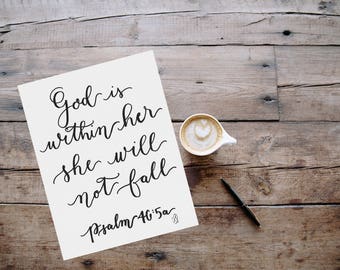 God is
within her
she will
not fall
psalm 46:5a